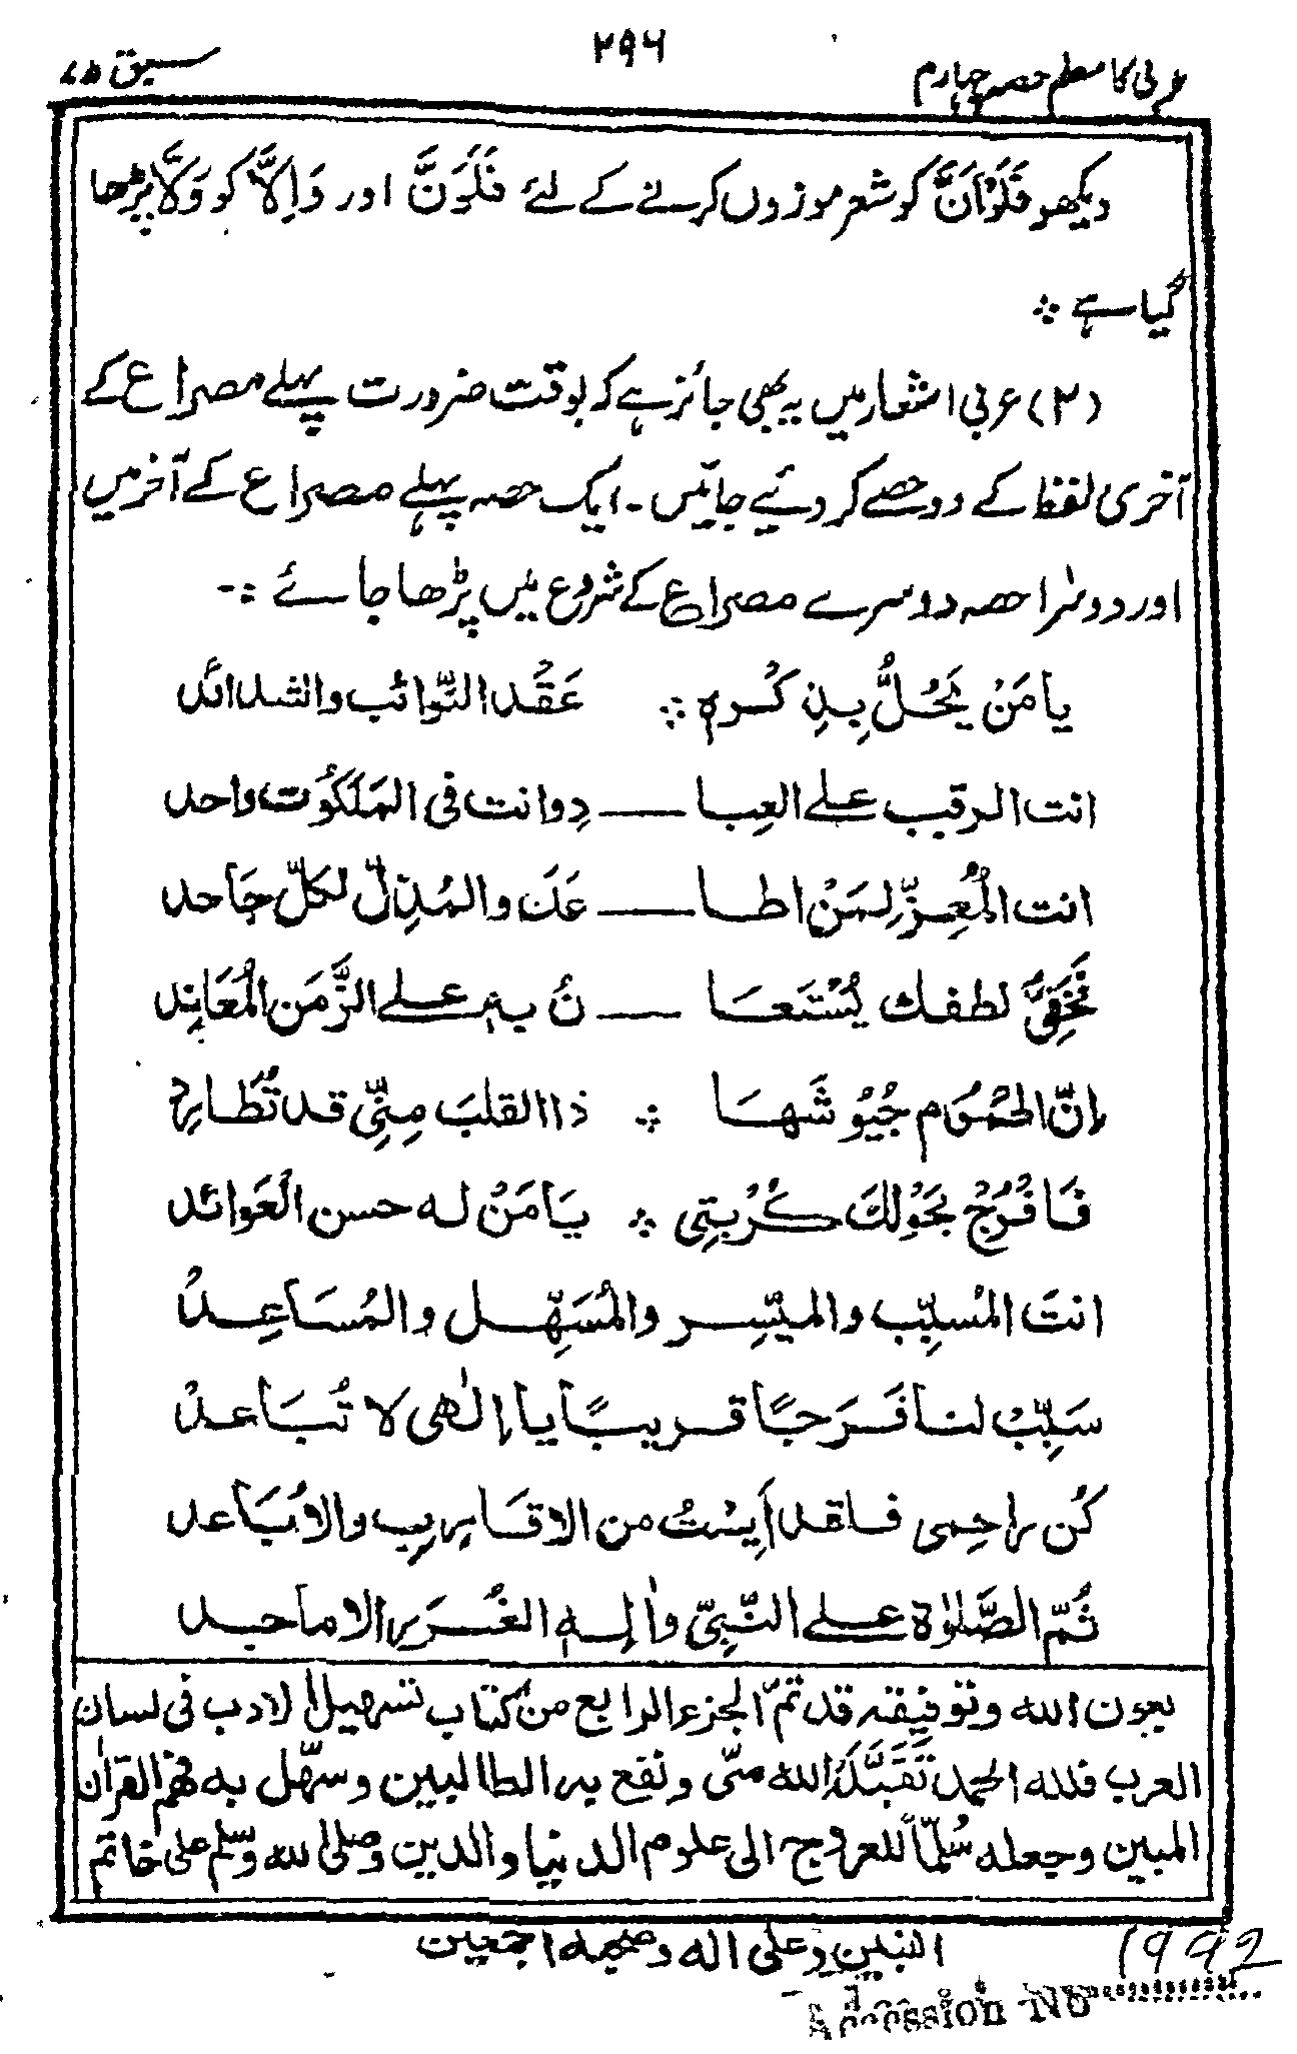 عربی کا معلم حصہ چہارم
۲۹۶
سبق ۷۵
دیکھو فَلَوْاَنَّ کو شعر موزوں کرنے کے لئے فَلَوَنَّ اور وَاِلَّا کو وَلَّا پڑھا
گیا ہے ؞
(۲) عربی اشعار میں یہ بھی جائز ہے کہ بوقت ضرورت پہلے مصراع کے
آخری لفظ کے دو حصے کر دئیے جائیں ۔ ایک حصہ پہلے مصراع کے آخر میں
اور دوسرا حصہ دوسرے مصراع کے شروع میں پڑھا جائے :-
یا مَنْ یَحُلُّ بِذِکْرِہٖ ؞ عَقْدُ النّوائب والشدائد
انت الرقیب علے العِبا — دِ وانت فی المَلَکُوت واحد
انت الْمُعِزّ لِمَنْ اطا — عَكَ والمُذِلّ لکلّ جَاحد
فَخَفِیُّ لطفك یُسْتَعَا — نُ بِہٖ علے الزَّمَن الْمُعَانِد
اِنّ الھُمُوم جُیُوشَھَا ؞ ذا القلبَ مِنِّی قد تُطَارِد
فَافْرُجْ بِحَوْلِكَ کُرْبتِی ؞ یَا مَنْ لہ حسن الْعَوائد
انتَ الْمُسبِّب والمیَسِّر والْمُسَھِّل والمُسَاعِدْ
سَبِّبْ لنا فَرَجًا قریبًا یا اِلٰھی لا تُبَاعدْ
کُن راحِمی فلقد اَیِسْتُ من الاقَارِب والاَبَاعد
ثُمّ الصَّلٰوۃ علے النّبِیّ واٰلِہِ الغُرَرِ الاماجد
بعون اللہ وتوفیقہ قد تمّ الجزء الرابع من کتاب تسھیل الادب فی لسان
العرب فللہ الحمد تَقَبَّلَہُ اللہ منّی ونفع بہ الطالبین وسھّل بہ فھم القراٰن
المبین وجعلہ سُلّمًا للعروج الی علوم الدنیا والدین وصلی اللہ وسّلم علی خاتم
النبیین وعلی اٰلہ وصحبہ اجمعین
1992
Accession No